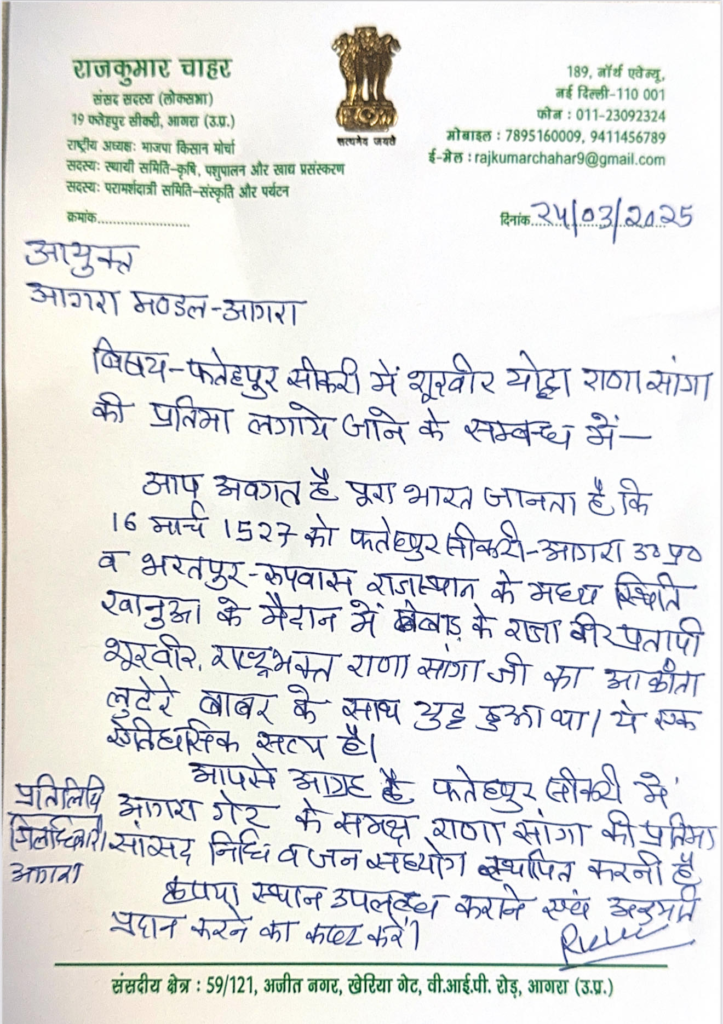 राजकुमार चाहर
संसद सदस्य (लोकसभा)
19 फतेहपुर सीकरी, आगरा (उ.प्र.)
राष्ट्रीय अध्यक्षः भाजपा किसान मोर्चा
सदस्यः स्थायी समिति-कृषि, पशुपालन और खाद्य प्रसंस्करण
सदस्यः परामर्शदात्री समिति-संस्कृति और पर्यटन
क्रमांक.........................
सत्यमेव जयते
189, नॉर्थ एवेन्यू,
नई दिल्ली-110 001
फोन : 011-23092324
मोबाइल : 7895160009, 9411456789
ई-मेल : rajkumarchahar9@gmail.com
दिनांक 24/03/2025
आयुक्त
आगरा मण्डल-आगरा
विषय-फतेहपुर सीकरी में शूरवीर योद्धा राणा सांगा
की प्रतिमा लगाये जाने के सम्बन्ध में—
आप अवगत है पूरा भारत जानता है कि
16 मार्च 1527 को फतेहपुर सीकरी-आगरा उ०प्र०
व भरतपुर-रुपवास राजस्थान के मध्य स्थिति
खानुआ के मैदान में मेवाड़ के राजा वीर प्रतापी
शूरवीर, राष्ट्रभक्त राणा सांगा जी का आक्रांता
लुटेरे बाबर के साथ युद्ध हुआ था। ये एक
ऐतिहासिक सत्य है।
आपसे आग्रह है फतेहपुर सीकरी में
आगरा गेट के समक्ष राणा सांगा की प्रतिमा
सांसद निधि व जन सहयोग स्थापित करनी है
कृपया स्थान उपलब्ध कराने एवं अनुमति
प्रदान करने का कष्ट करें।
प्रतिलिपि
जिलाधिकारी
आगरा
संसदीय क्षेत्र : 59/121, अजीत नगर, खेरिया गेट, वी.आई.पी. रोड़, आगरा (उ.प्र.)